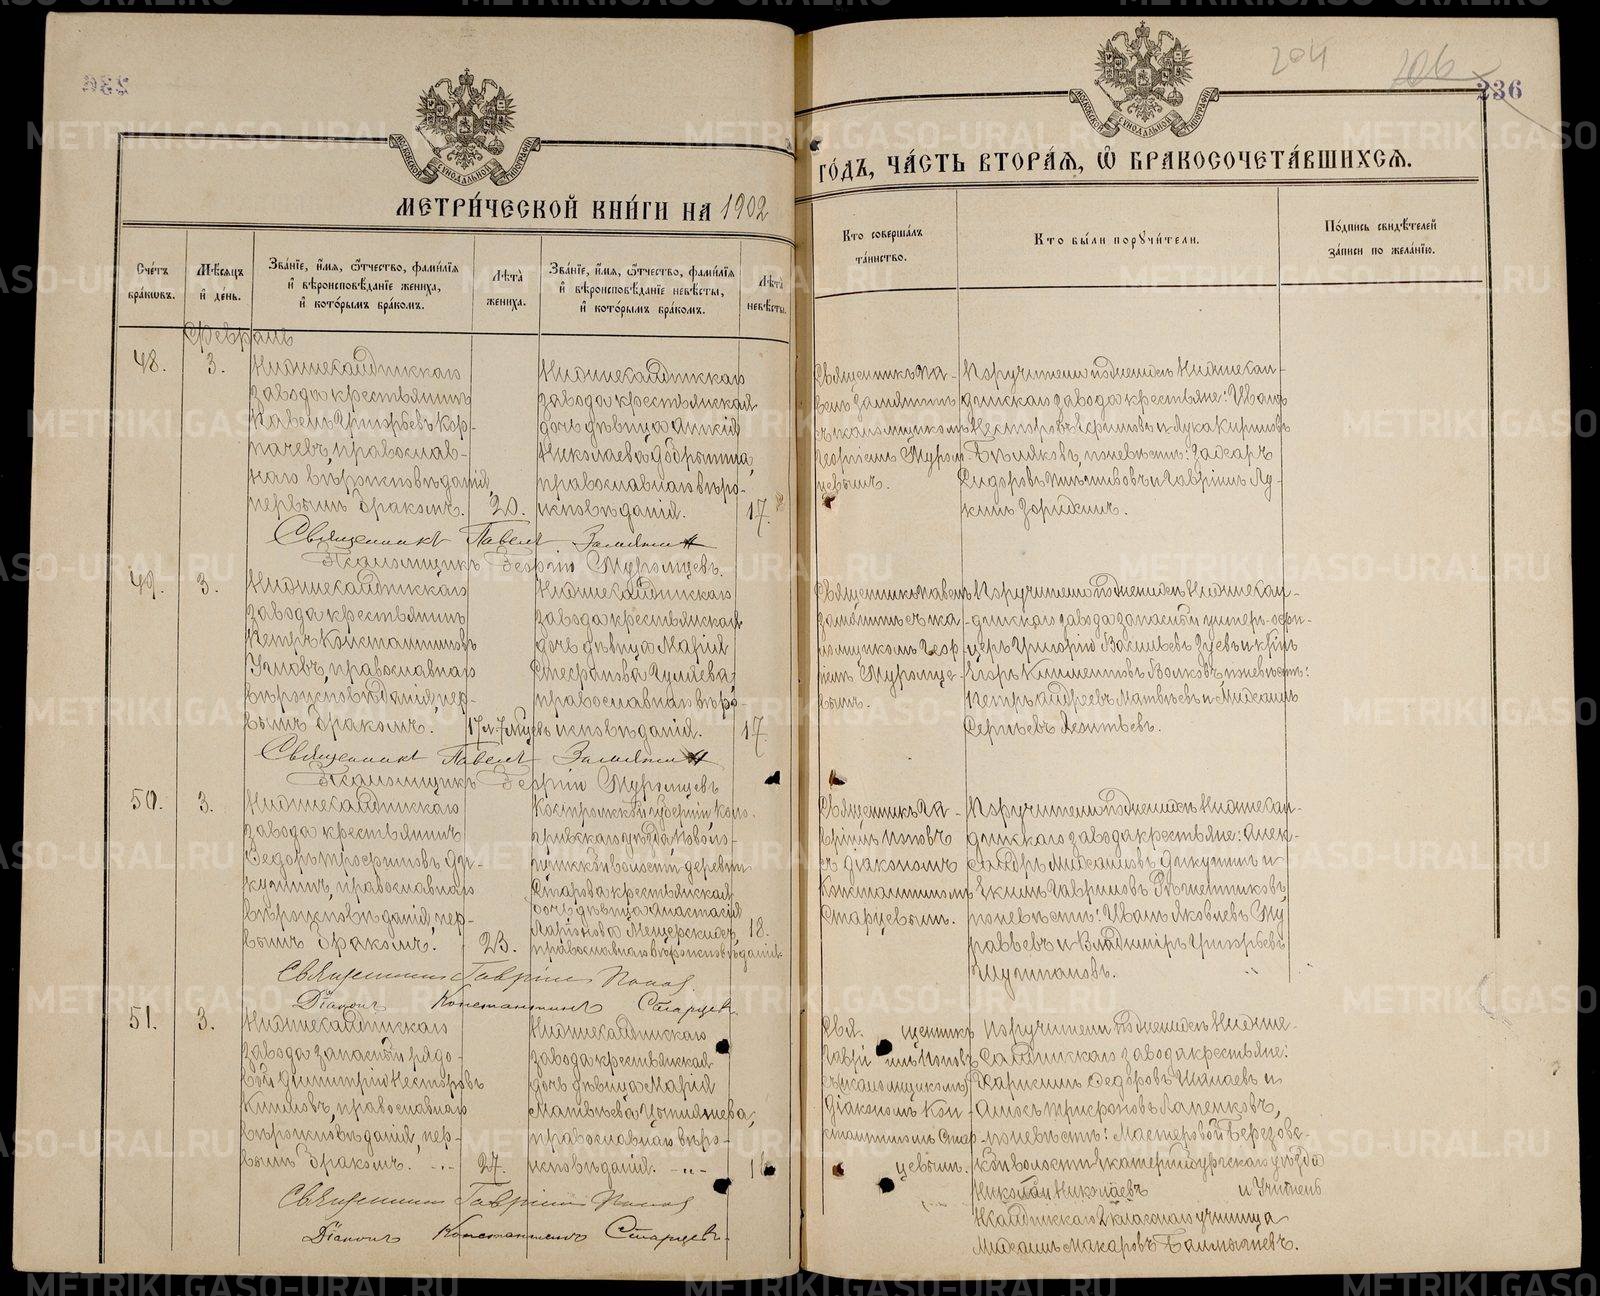 236
204
206
236
МОСКОВСКОЙ СУНОДАЛЬНОЙ ТИПОГРАФІИ
МОСКОВСКОЙ СУНОДАЛЬНОЙ ТИПОГРАФІИ
МЕТРИ́ЧЕСКОЙ КНИ́ГИ НА 1902
ГО́ДЪ, ЧА́СТЬ ВТОРА́Я, Ѡ БРАКОСОЧЕТА́ВШИХСЯ.
Сче́тъ бра́кωвъ.
Мѣ́сяцъ и҆ де́нь.
Зва́нїе, и҆́мя, ѻ҆́тчество, фамі́лїя
и҆ вѣроисповѣ́данїе жениха̀,
и҆ кото́рымъ бра́комъ.
Лѣ́та жениха̀.
Зва́нїе, и҆́мя, ѻ҆́тчество, фамі́лїя
и҆ вѣроисповѣ́данїе невѣ́сты,
и҆ кото́рымъ бра́комъ.
Лѣ́та невѣ́сты.
Кто̀ соверша́лъ
та́инство.
Кто̀ бы́ли порꙋчи́тели.
По́дпись свидѣ́телей
за́писи по жела́нїю.
Февраль
48.
3.
Нижнесалдинскаго
завода крестьянинъ
Павелъ Григорьевъ Кор-
пачевъ, православ-
наго вѣроисповѣданія,
первымъ бракомъ.
20.
Нижнесалдинскаго
завода крестьянская
дочь дѣвица
Николаева Добрынина,
православнаго вѣро-
исповѣданія.
17.
Священникъ Па-
велъ Замятинъ
съ псаломщикомъ
Георгіемъ Муром-
цевымъ.
Поручители по женихѣ: Нижнесал-
динскаго завода крестьяне: Иванъ
Несторовъ и Лука Кириловъ
Бѣляковъ, по невѣстѣ: Захаръ
Сидоровъ и Гавріилъ Лу-
кинъ Зорихинъ.
Священникъ Павелъ Замятинъ
Псаломщикъ Георгій Муромцевъ.
49.
3.
Нижнесалдинскаго
завода крестьянинъ
Петръ Константиновъ
православнаго
вѣроисповѣданія, пер-
вымъ бракомъ.
17 л. 7 мцевъ
Нижнесалдинскаго
завода крестьянская
дочь дѣвица Марія
Стефанова Гуляева,
православнаго вѣро-
исповѣданія.
17.
Священникъ Павелъ
Замятинъ съ пса-
ломщикомъ Геор-
гіемъ Муромце-
вымъ.
Поручители по женихѣ: Нижнесал-
динскаго завода запасный унтеръ-офи-
церъ Григорій Васильевъ Зуевъ и кр-нъ
Егоръ Климентовъ Волковъ, по невѣстѣ:
Петръ Андреевъ Матвѣевъ и Михаилъ
Сергѣевъ Леонтьевъ.
Священникъ Павелъ Замятинъ
Псаломщикъ Георгій Муромцевъ
50.
3.
Нижнесалдинскаго
завода крестьянинъ
Ѳедоръ Трофимовъ Ди-
кушинъ, православнаго
вѣроисповѣданія, пер-
вымъ бракомъ.
23.
Костромской губерніи, Коло-
гривскаго уѣзда,
волости деревни
Старова крестьянская
дочь дѣвица Анастасія
Ларіонова Мещерскихъ,
православнаго вѣроисповѣданія.
18.
Священникъ Га-
вріилъ Поповъ
съ діакономъ
Константиномъ
Старцевымъ.
Поручители по женихѣ: Нижнесал-
динскаго завода крестьяне: Алек-
сандръ Михаиловъ Дикушинъ и
Екимъ Гавриловъ Рѣшетниковъ,
по невѣстѣ: Иванъ Яковлевъ Му-
равьевъ и Владиміръ Григорьевъ
Шулпановъ.
Священникъ Гавріилъ Поповъ.
Діаконъ Константинъ Старцевъ.
51.
3.
Нижнесалдинскаго
завода запасный рядо-
вой Димитрій Несторовъ
православнаго
вѣроисповѣданія, пер-
вымъ бракомъ.
27.
Нижнесалдинскаго
завода крестьянская
дочь дѣвица Марія
Матвѣева Устиянцева,
православнаго вѣро-
исповѣданія.
Свя щенникъ
Гаврі илъ Поповъ
съ псаломщикомъ
діакономъ Кон-
стантиномъ Стар-
цевымъ.
Поручители по женихѣ: Нижне-
Салдинскаго завода крестьяне:
Ѳедоровъ и
Амосъ Трифоновъ Лапенковъ,
по невѣстѣ: Мастеровой Березов-
ской волости Екатеринбургскаго уѣзда
Николай Николаевъ и Учитель
Н-Салдинскаго 2 класснаго училища
Михаилъ Макаровъ Балмышевъ.
Священникъ Гавріилъ Поповъ
Діаконъ Константинъ Старцевъ.
METRIKI.GASO-URAL.RU